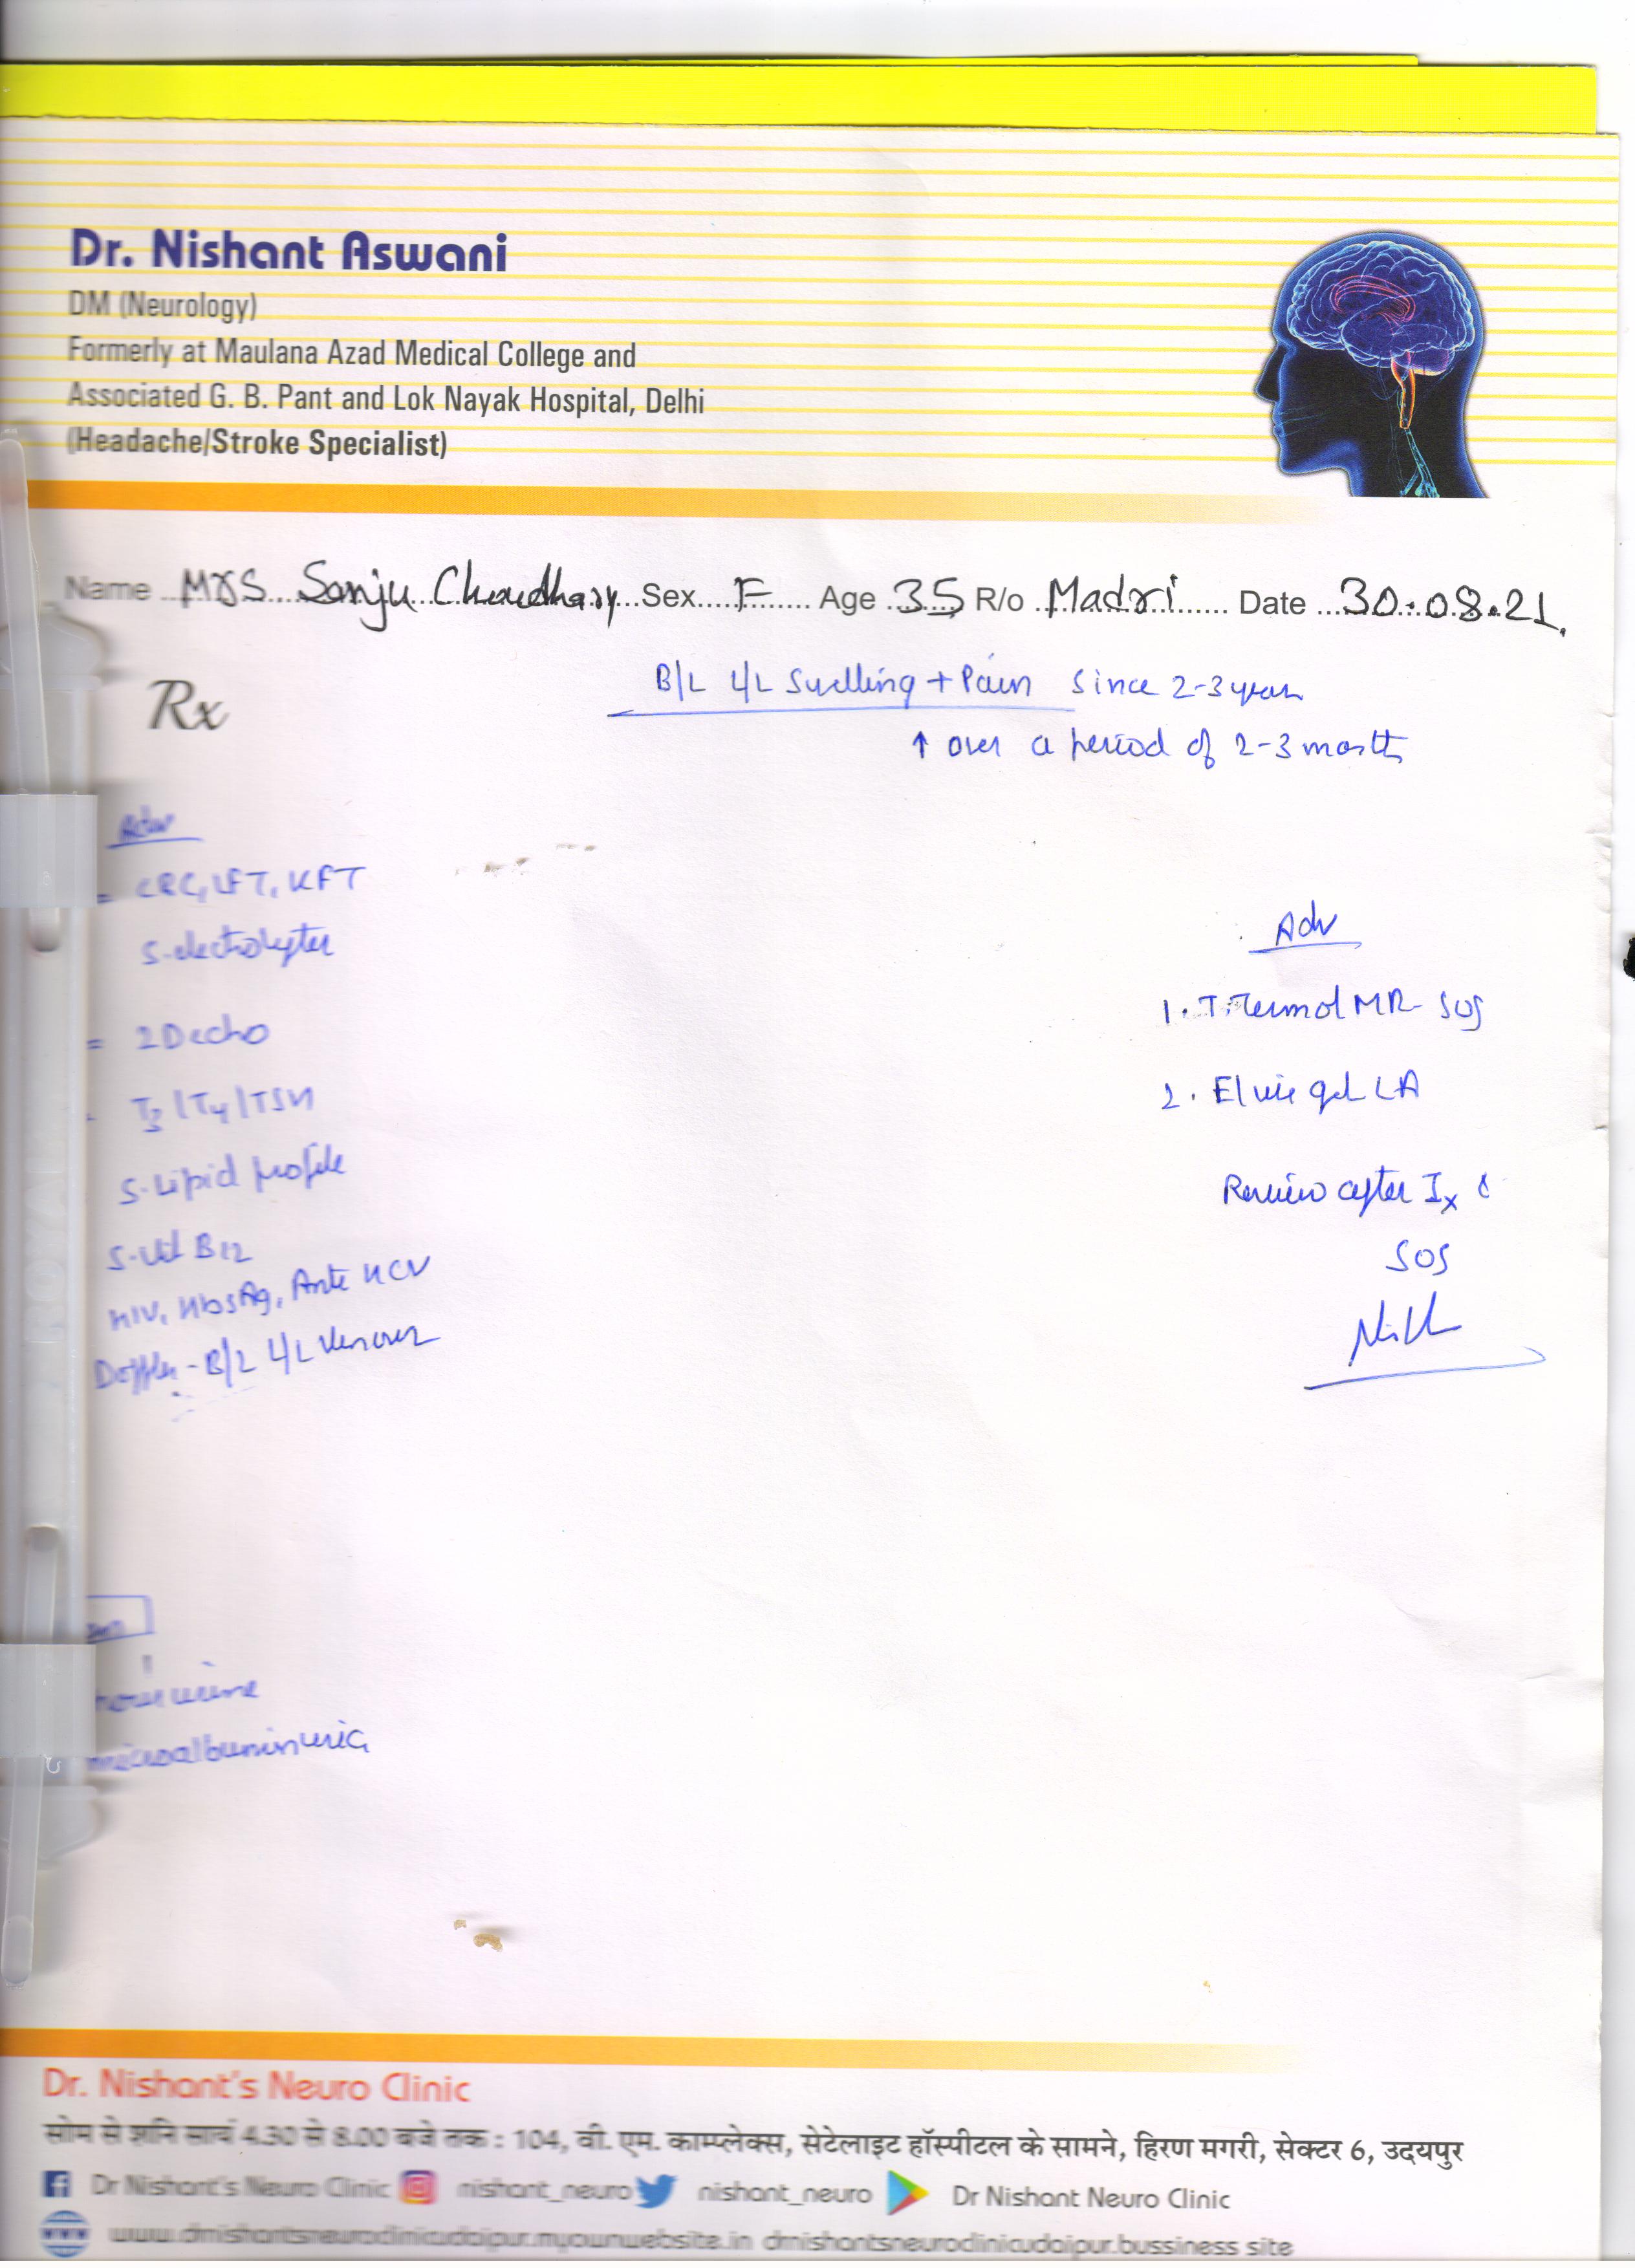 Dr. Nishant Aswani
DM (Neurology)
Formerly at Maulana Azad Medical College and
Associated G. B. Pant and Lok Nayak Hospital, Delhi
(Headache/Stroke Specialist)
Name Mrs Sanju Choudhary Sex F Age 35 R/o Madri Date 30.08.21.
Rx
B/L L/L Swelling + Pain since 2-3 years
↑ over a period of 2-3 months
Adv
= CBC, LFT, KFT
S-electrolytes
= 2D echo
- T3/T4/TSH
S-Lipid profile
S-Vit B12
HIV, HbsAg, Anti HCV
Doppler - B/L L/L Venous
Adv
1. T. MR - SOS
2. gel LA
Review after Ix &
SOS
urine
microalbuminuria
Dr. Nishant's Neuro Clinic
सोम से शनि सायं 4.30 से 8.00 बजे तक : 104, वी. एम. काम्प्लेक्स, सेटेलाइट हॉस्पीटल के सामने, हिरण मगरी, सेक्टर 6, उदयपुर
Dr Nishant's Neuro Clinic nishant_neuro nishant_neuro Dr Nishant Neuro Clinic
www.drnishantsneuroclinicudaipur.myownwebsite.in drnishantsneuroclinicudaipur.bussiness site